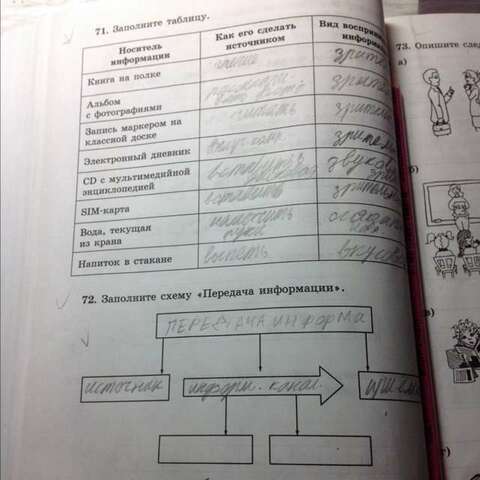 71. Заполните таблицу.
Носитель информации
Как его сделать источником
Вид восприн
информа
73. Опишите след
а)
Книга на полке
чтение
зрите
Альбом
с фотографиями
зрите
Запись маркером на
классной доске
читать
зрителн
Электронный дневник
зрител
CD с мультимедийной
энциклопедией
вставить в
звуков
SIM-карта
вставить
зрительн
Вода, текущая
из крана
намочить
руки
осязат
Напиток в стакане
выпить
вкусов
б)
72. Заполните схему «Передача информации».
ПЕРЕДАЧА ИНФОРМА
в)
источник
информ. канал
г)